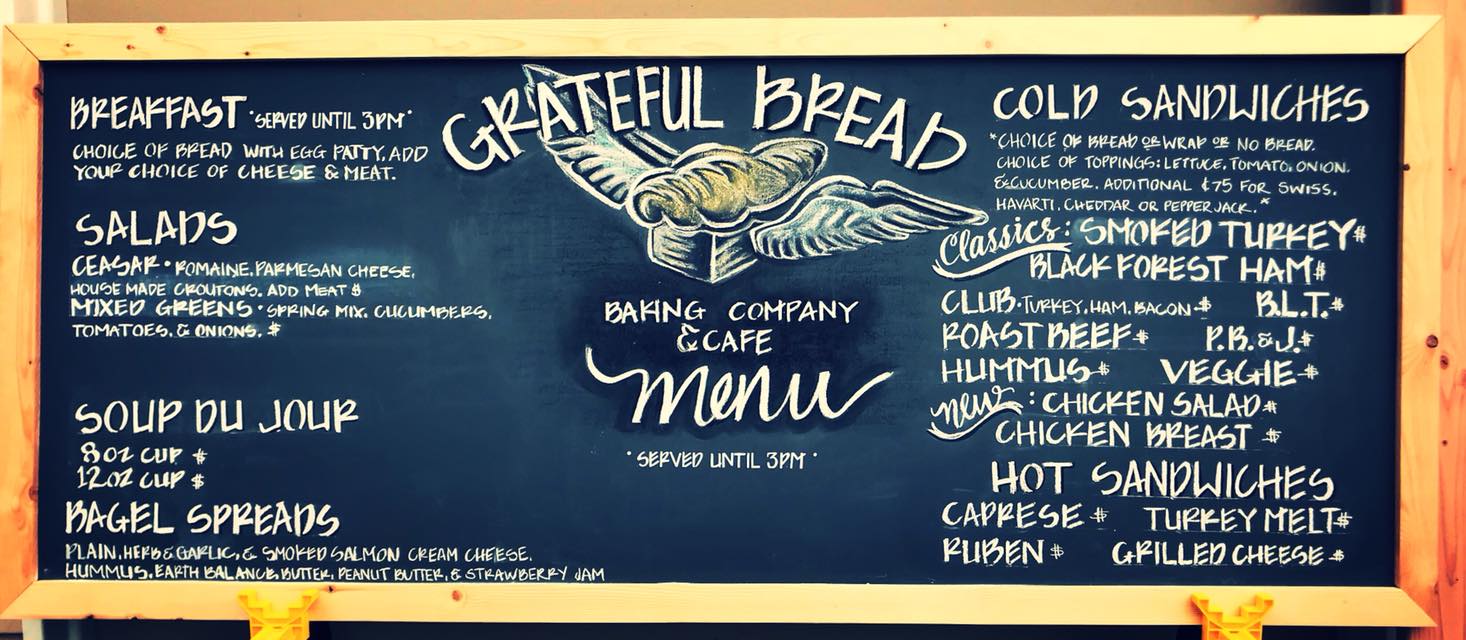 GRATEFUL BREAD
BAKING COMPANY
& CAFE
menu
•SERVED UNTIL 3PM•
BREAKFAST •SERVED UNTIL 3PM•
CHOICE OF BREAD WITH EGG PATTY, ADD
YOUR CHOICE OF CHEESE & MEAT.
SALADS
CEASAR • ROMAINE, PARMESAN CHEESE,
HOUSE MADE CROUTONS. ADD MEAT $
MIXED GREENS • SPRING MIX, CUCUMBERS,
TOMATOES, & ONIONS. $
SOUP DU JOUR
8 OZ CUP $
12 OZ CUP $
BAGEL SPREADS
PLAIN, HERB & GARLIC, & SMOKED SALMON CREAM CHEESE.
HUMMUS, EARTH BALANCE, BUTTER, PEANUT BUTTER, & STRAWBERRY JAM
COLD SANDWICHES
*CHOICE OF BREAD OR WRAP OR NO BREAD.
CHOICE OF TOPPINGS: LETTUCE, TOMATO, ONION,
& CUCUMBER. ADDITIONAL ¢75 FOR SWISS,
HAVARTI, CHEDDAR OR PEPPERJACK.*
Classics: SMOKED TURKEY $
BLACK FOREST HAM $
CLUB • TURKEY, HAM, BACON $ B.L.T. $
ROAST BEEF $ P.B. & J. $
HUMMUS $ VEGGIE $
new: CHICKEN SALAD $
CHICKEN BREAST $
HOT SANDWICHES
CAPRESE $ TURKEY MELT $
RUBEN $ GRILLED CHEESE $